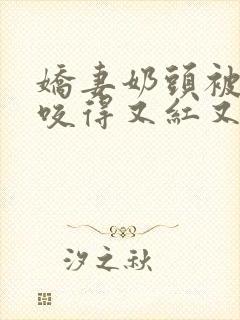 嬌妻奶頭被
咬得又紅又
汐之秋